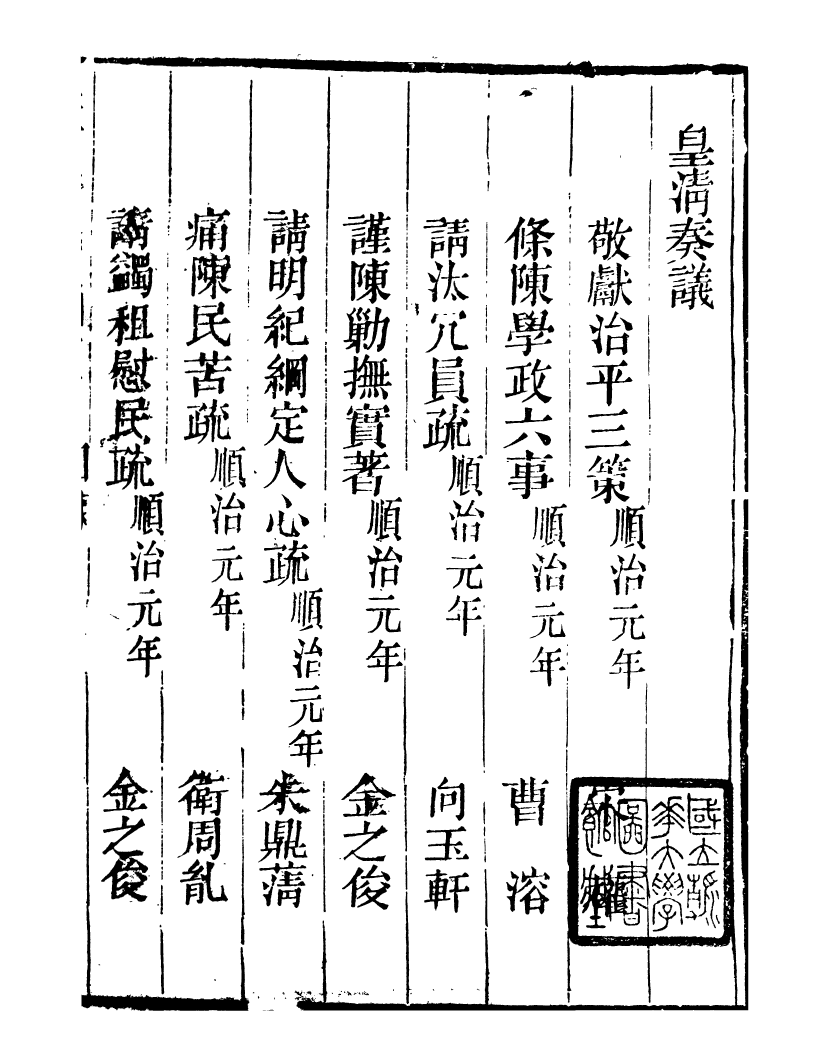 皇淸奏議
敬獻治平三策 順治元年
條陳學政六事 順治元年 曹溶
請汰冗員疏 順治元年 向玉軒
謹陳勦撫實著 順治元年 金之俊
請明紀綱定人心疏 順治元年 朱鼎蔳
痛陳民苦疏 順治元年 衛周胤
請蠲租慰民疏 順治元年 金之俊
國立
華大學
圖書